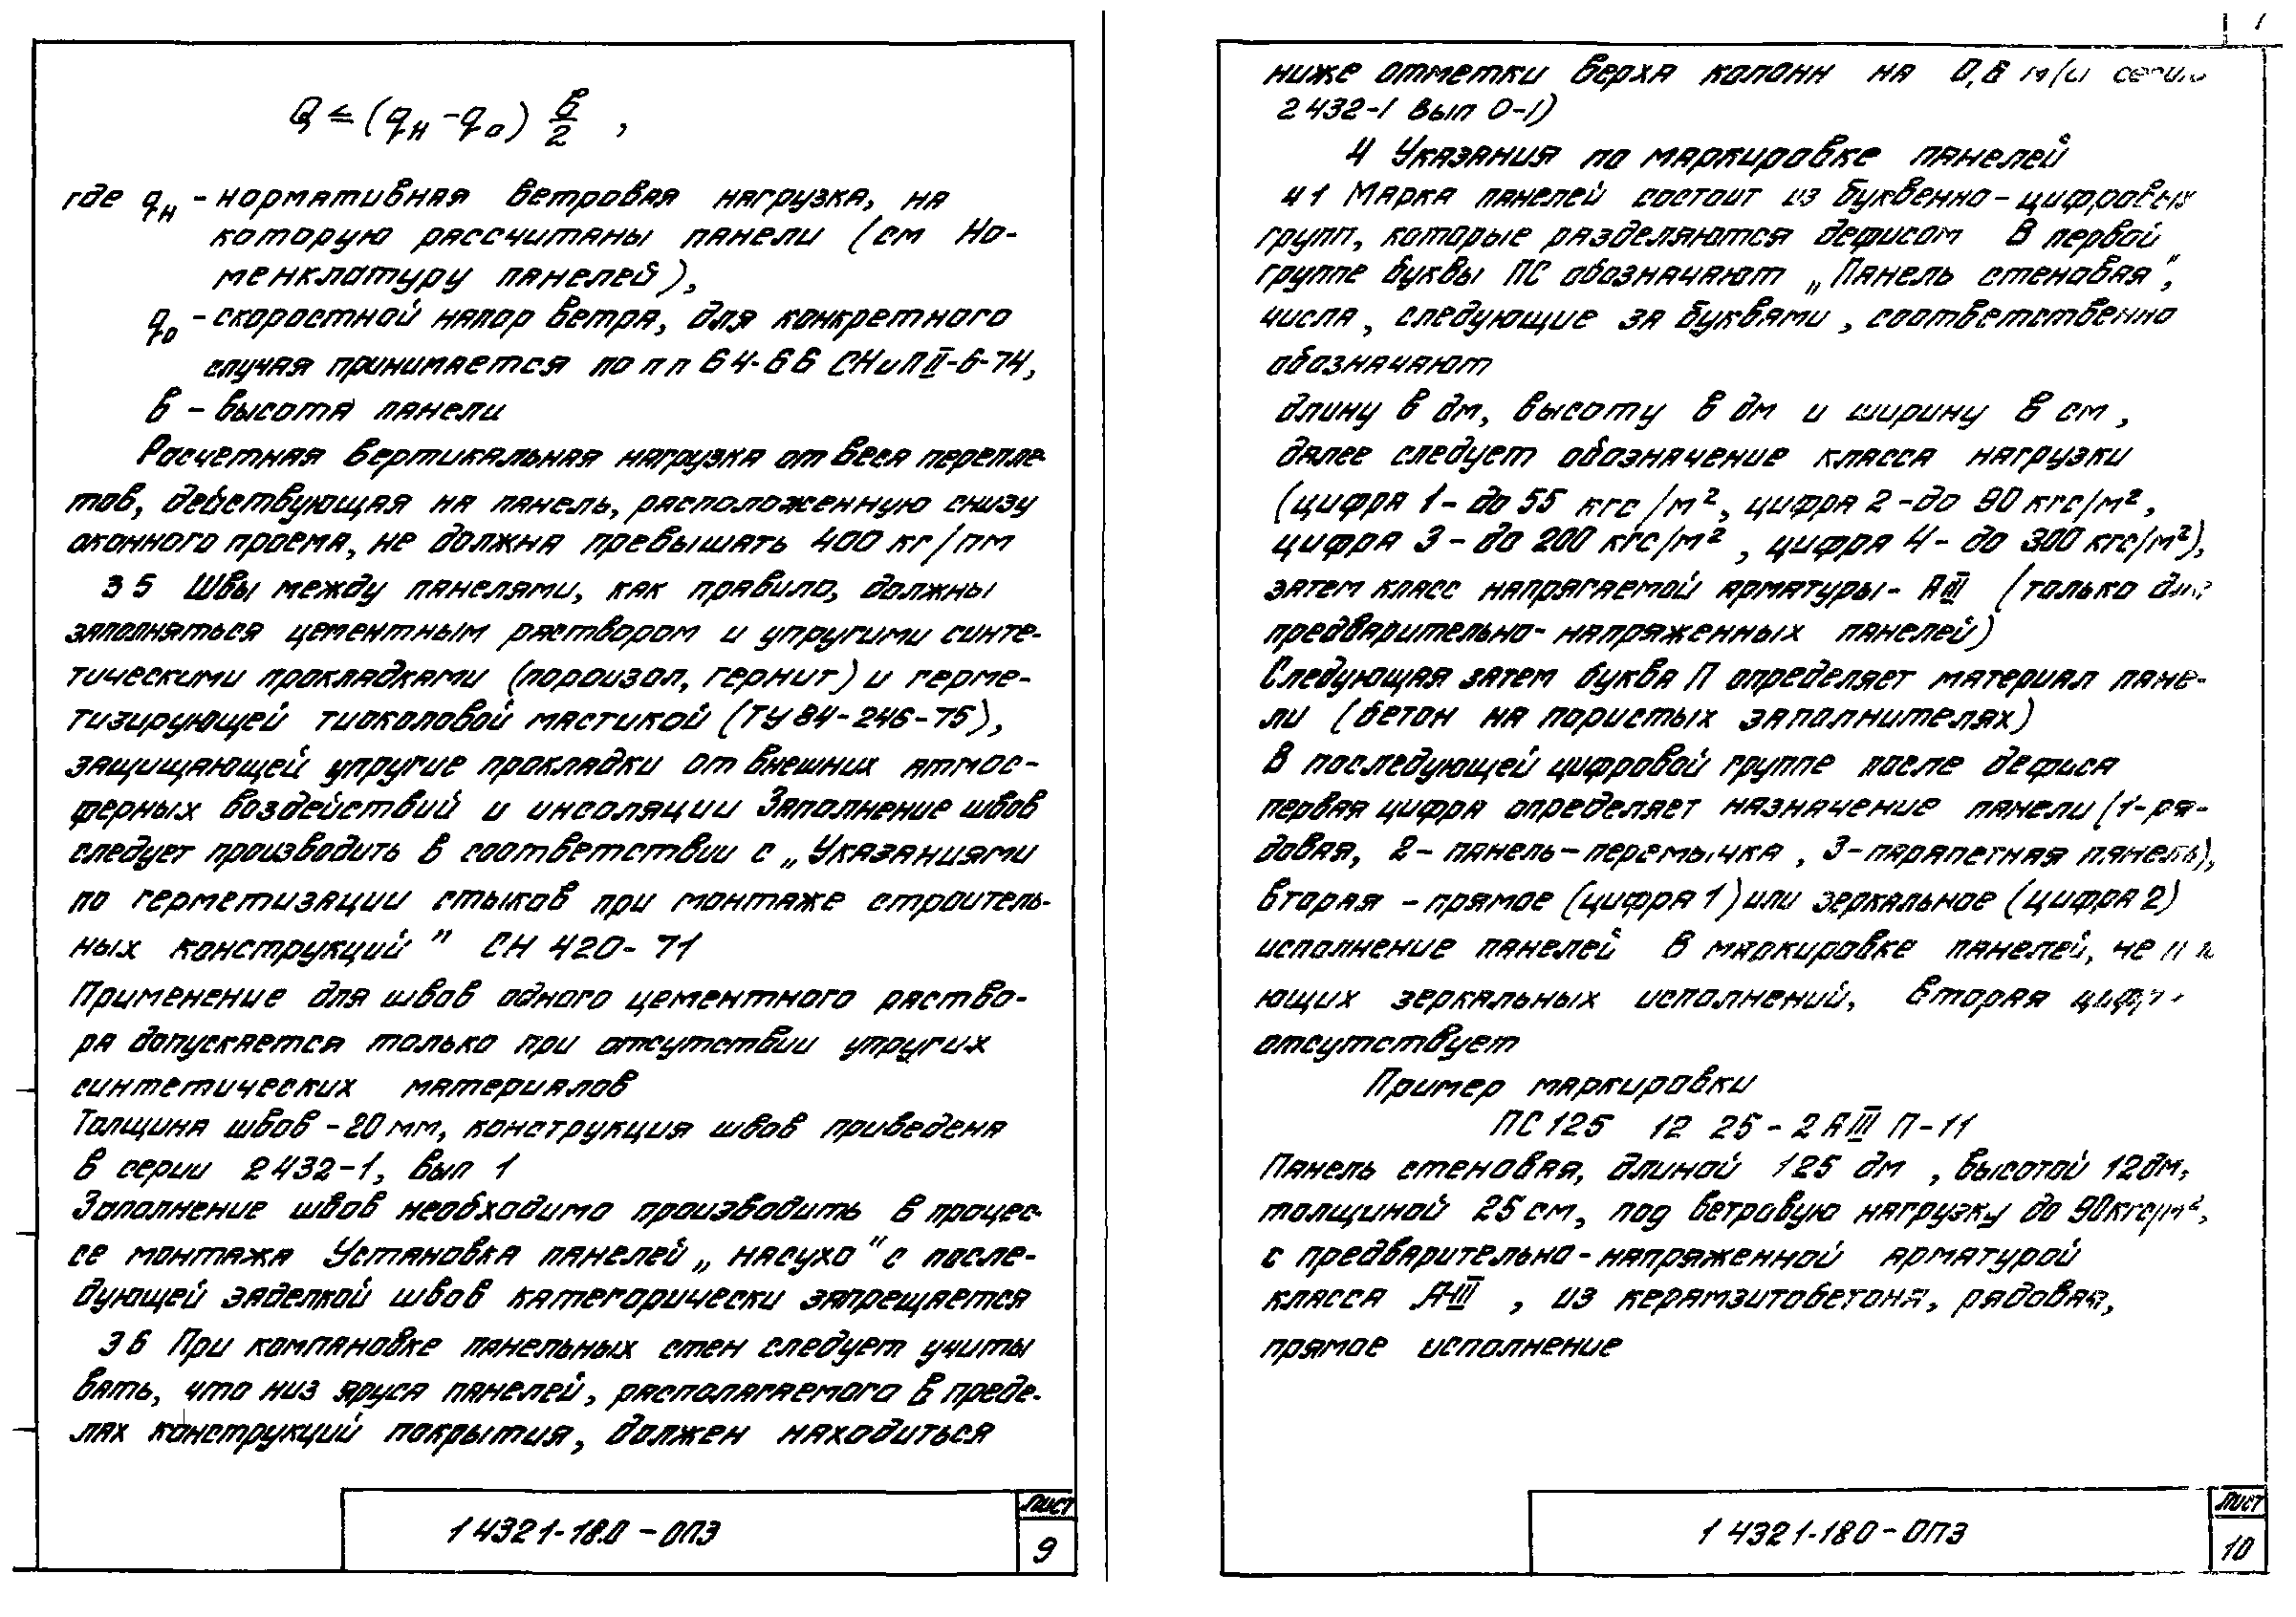 Q ≤ (qн - qо) в/2 ,
где qн - нормативная ветровая нагрузка, на
которую рассчитаны панели (см Но-
менклатуру панелей),
qо - скоростной напор ветра, для конкретного
случая принимается по п п 6 4-6 6 СНиП II-6-74,
в - высота панели
Расчетная вертикальная нагрузка от веса перепле-
тов, действующая на панель, расположенную снизу
оконного проема, не должна превышать 400 кг/пм
3 5 Швы между панелями, как правило, должны
заполняться цементным раствором и упругими синте-
тическими прокладками (пороизол, гернит) и герме-
тизирующей тиоколовой мастикой (ТУ 84-246-75),
защищающей упругие прокладки от внешних атмос-
ферных воздействий и инсоляции Заполнение швов
следует производить в соответствии с „Указаниями
по герметизации стыков при монтаже строитель-
ных конструкций" СН 420-71
Применение для швов одного цементного раство-
ра допускается только при отсутствии упругих
синтетических материалов
Толщина швов - 20 мм, конструкция швов приведена
в серии 2 432-1, вып 1
Заполнение швов необходимо производить в процес-
се монтажа Установка панелей „насухо" с после-
дующей заделкой швов категорически запрещается
3 6 При компановке панельных стен следует учиты
вать, что низ яруса панелей, располагаемого в преде-
лях конструкций покрытия, должен находиться
1 432 1-18.0 - ОПЗ
Лист
9
ниже отметки верха колонн на 0,6 м серии
2 432-1 вып 0-1)
4 Указания по маркировке панелей
4 1 Марка панелей состоит из буквенно-цифровых
групп, которые разделяются дефисом В первой
группе буквы ПС обозначают „Панель стеновая",
числа, следующие за буквами, соответственно
обозначают
длину в дм, высоту в дм и ширину в см,
далее следует обозначение класса нагрузки
(цифра 1 - до 55 кгс/м², цифра 2 - до 90 кгс/м²,
цифра 3 - до 200 кгс/м², цифра 4 - до 300 кгс/м²),
затем класс напрягаемой арматуры - АIII (только для
предварительно-напряженных панелей)
Следующая затем буква П определяет материал пане-
ли (бетон на пористых заполнителях)
В последующей цифровой группе после дефиса
первая цифра определяет назначение панели (1-ря-
довая, 2-панель-перемычка, 3-парапетная панель),
вторая - прямое (цифра 1) или зеркальное (цифра 2)
исполнение панелей В маркировке панелей, не
ющих зеркальных исполнений, вторая цифра
отсутствует
Пример маркировки
ПС 125 12 25 - 2 А III П-11
Панель стеновая, длиной 125 дм, высотой 12 дм,
толщиной 25 см, под ветровую нагрузку до 90 кгс/м²,
с предварительно-напряженной арматурой
класса А-III, из керамзитобетона, рядовая,
прямое исполнение
1 432 1-18 0 - ОПЗ
Лист
10